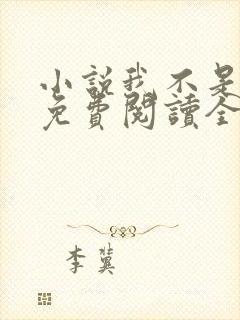 小説我不是
免費閱讀全
李冀